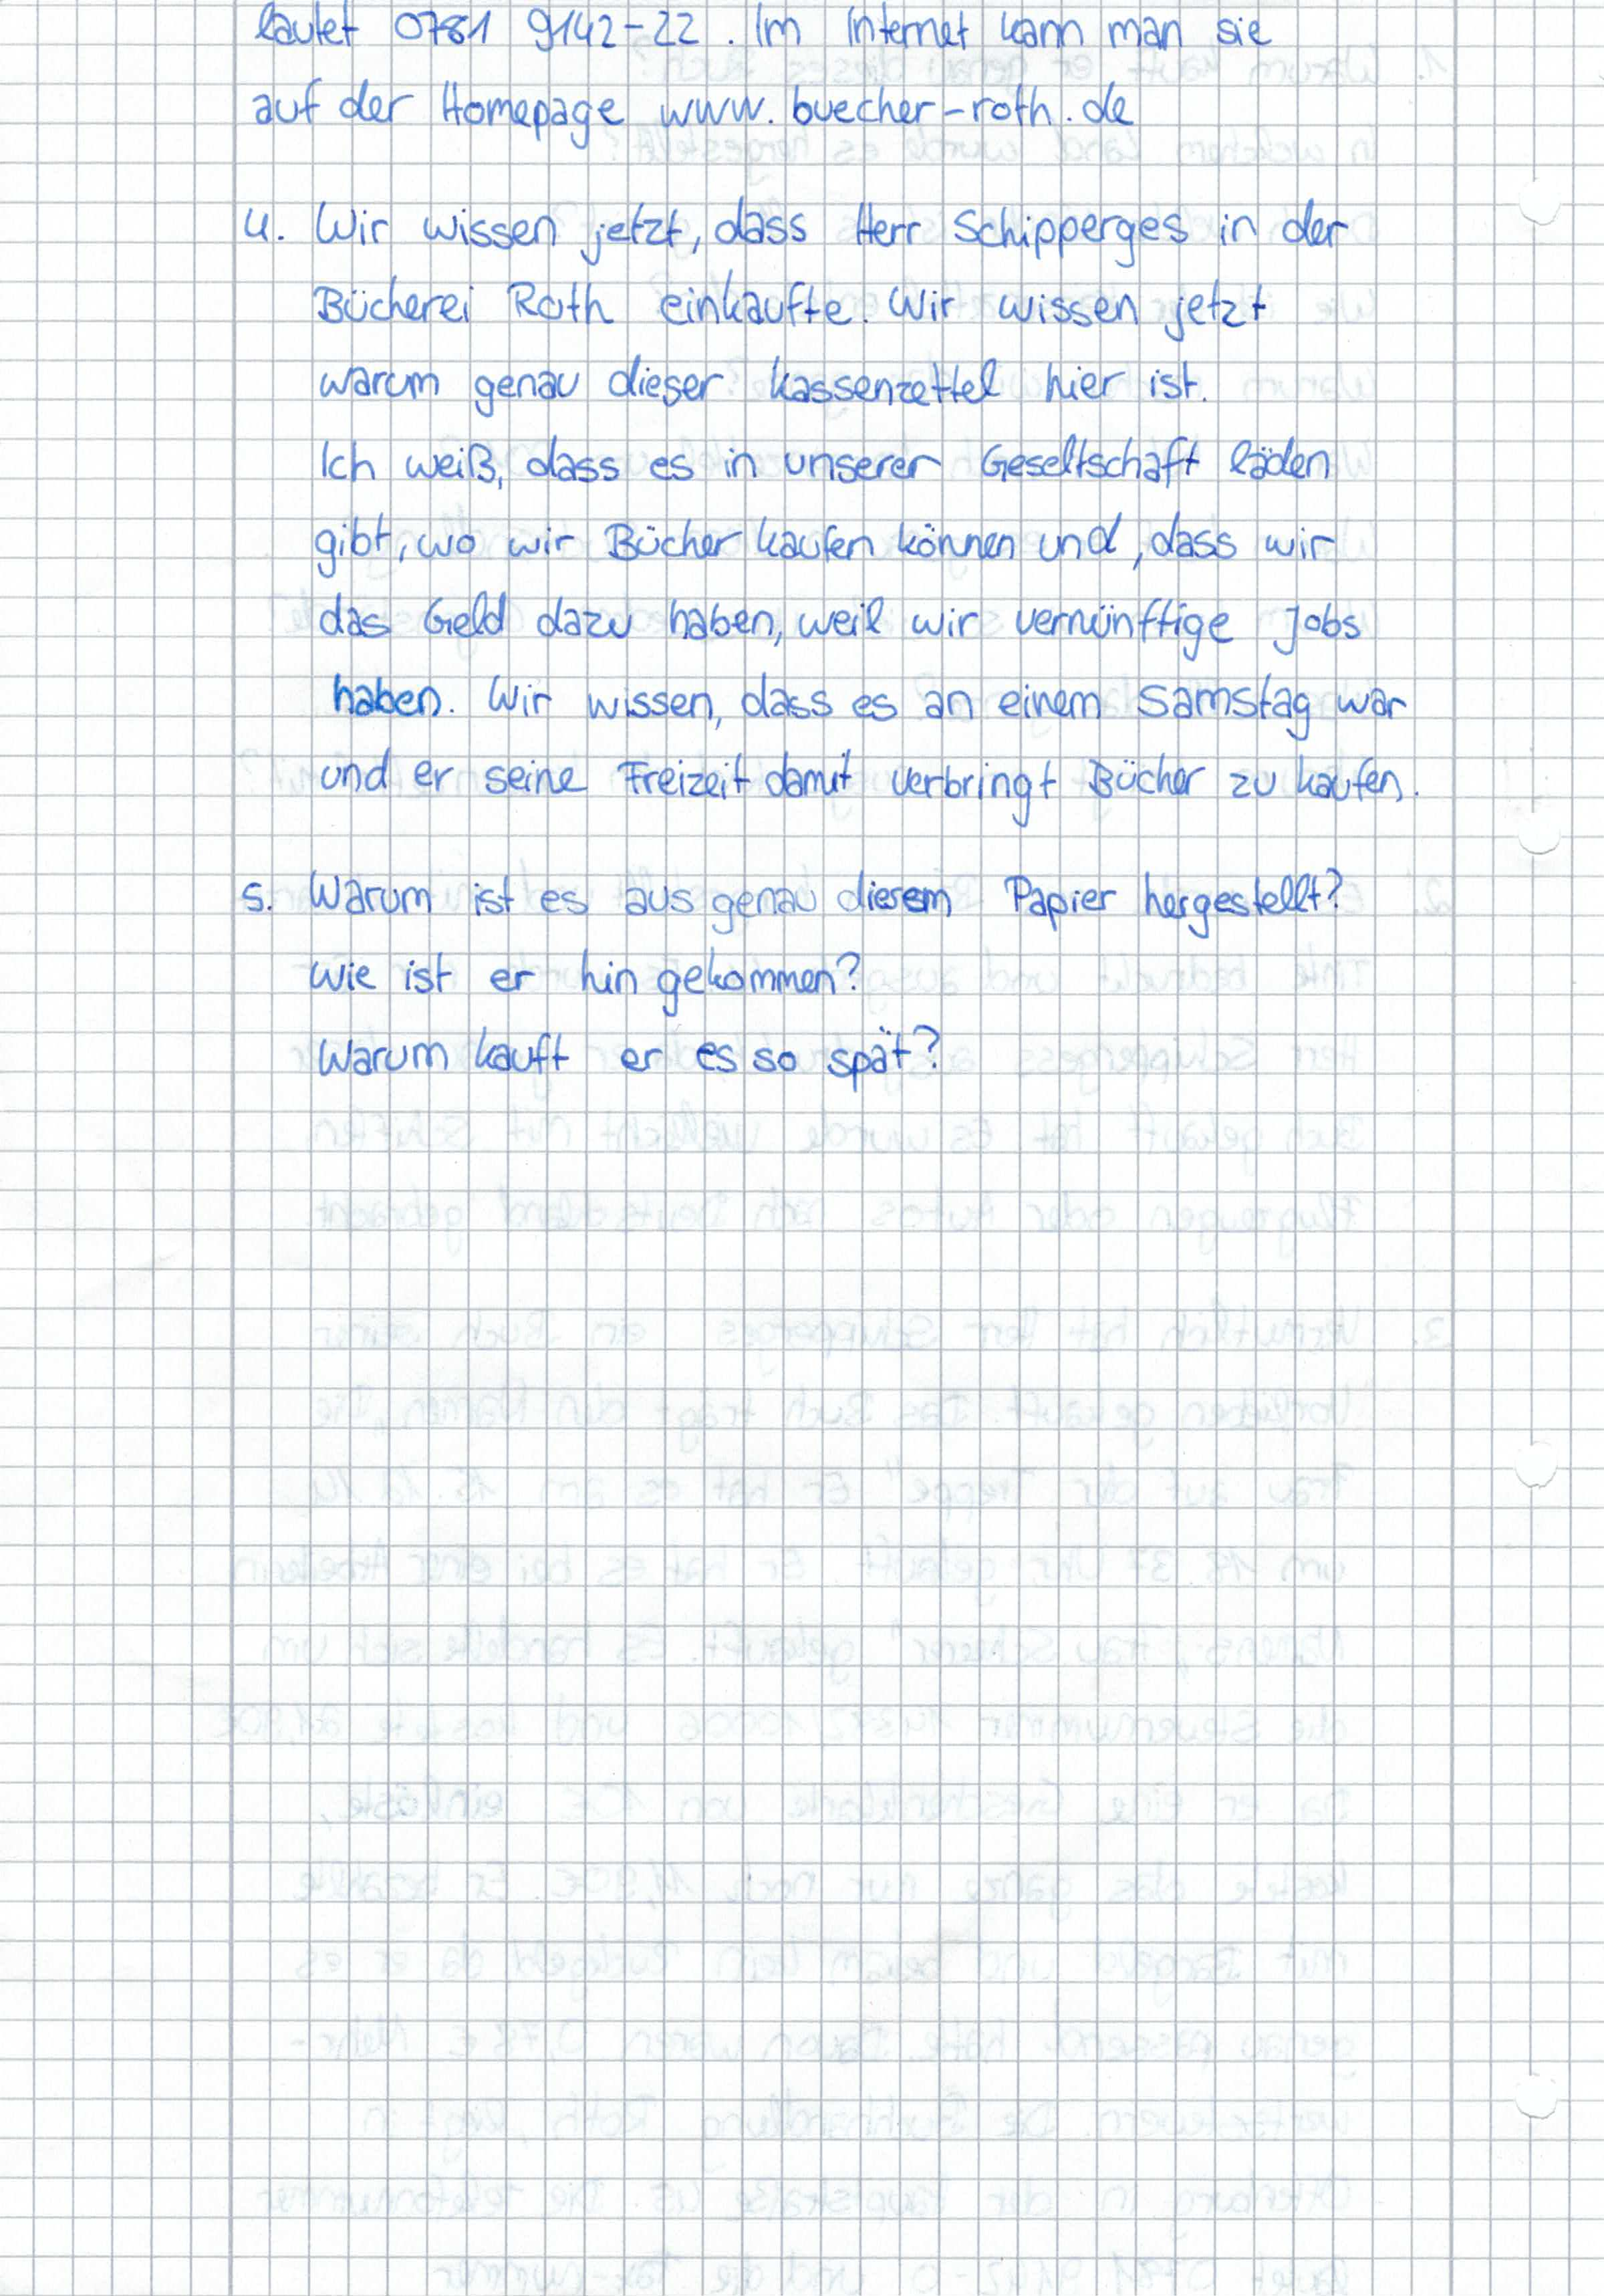 lautet 0781 9142-22. Im Internet kann man sie
auf der Homepage www.buecher-roth.de
4. Wir wissen jetzt, dass Herr Schipperges in der
Bücherei Roth einkaufte. Wir wissen jetzt
warum genau dieser Kassenzettel hier ist.
Ich weiß, dass es in unserer Geseltschaft läden
gibt, wo wir Bücher kaufen können und, dass wir
das Geld dazu haben, weil wir vernünftige Jobs
haben. Wir wissen, dass es an einem Samstag war
und er seine Freizeit damit verbringt Bücher zu kaufen.
5. Warum ist es aus genau diesem Papier hergestellt?
Wie ist er hin gekommen?
Warum kauft er es so spät?